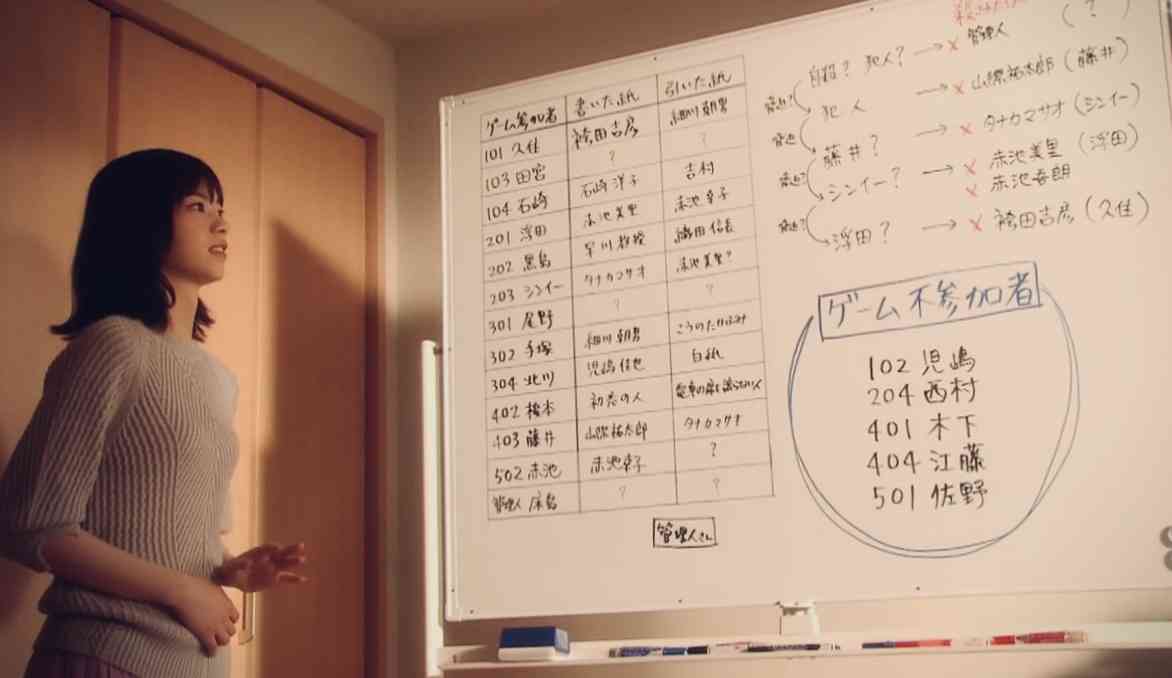 ゲーム参加者 書いた紙 引いた紙
101 久住 袴田吉彦 細川朝男
103 田宮 ? ?
104 石崎 石崎洋子 吉村
201 浮田 赤池美里 赤池幸子
202 黒島 早川教授 織田信長
203 シンイー タナカマサオ 赤池美里?
301 尾野 ? ?
302 手塚 細川朝男 こうのたかふみ
304 北川 児嶋佳世 白紙
402 榎本 初恋の人
403 藤井 山際祐太郎 タナカマサオ
502 赤池 赤池幸子 ?
管理人 床島 ? ?
管理人さん
自殺? 犯人? → × 管理人 (?)
脅迫?
犯人 → × 山際祐太郎(藤井)
脅迫
藤井? → × タナカマサオ(シンイー)
脅迫?
シンイー? → × 赤池美里(浮田)
× 赤池吾朗
脅迫?
浮田? → × 袴田吉彦(久住)
ゲーム不参加者
102 児嶋
204 西村
401 木下
404 江藤
501 佐野